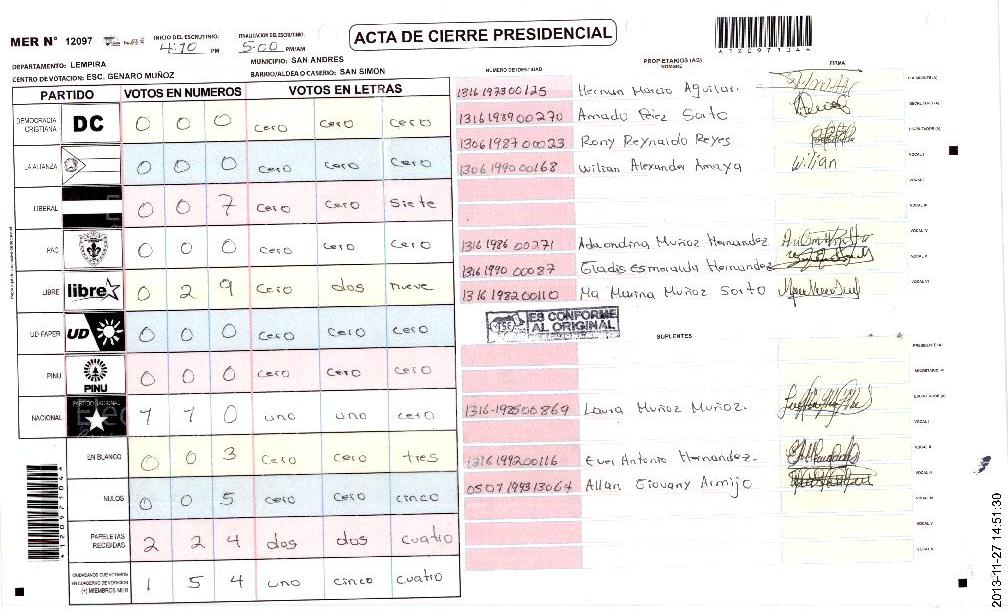 MER N° 12097
INICIO DEL ESCRUTINIO: 4:10 PM
FINALIZACION DEL ESCRUTINIO: 5:00 PM/AM
ACTA DE CIERRE PRESIDENCIAL
A120971044
DEPARTAMENTO: LEMPIRA
MUNICIPIO: SAN ANDRES
CENTRO DE VOTACION: ESC. GENARO MUÑOZ
BARRIO/ALDEA O CASERIO: SAN SIMON
PARTIDO VOTOS EN NUMEROS VOTOS EN LETRAS
DEMOCRACIA CRISTIANA DC 0 0 0 cero cero cero
LA ALIANZA 0 0 0 cero cero cero
LIBERAL 0 0 7 cero cero siete
PAC 0 0 0 cero cero cero
LIBRE libre 0 2 9 cero dos nueve
UD-FAPER UD 0 0 0 cero cero cero
PINU PINU 0 0 0 cero cero cero
NACIONAL PARTIDO NACIONAL 1 1 0 uno uno cero
EN BLANCO 0 0 3 cero cero tres
NULOS 0 0 5 cero cero cinco
PAPELETAS RECIBIDAS 2 2 4 dos dos cuatro
CIUDADANOS QUE VOTARON EN CUADERNO DE VOTACION (+) MIEMBROS MER 1 5 4 uno cinco cuatro
A120971044
PROPIETARIOS (AS)
NUMERO DE IDENTIDAD NOMBRE FIRMA
1316197300125 Hernan Marcio Aguilar. PRESIDENTE (A)
1316198900270 Amado Perez Sorto SECRETARIO (A)
1306198700023 Rony Reynaldo Reyes ESCRUTADOR (A)
1306199000168 Wilian Alexander Amaya Wilian VOCAL I
VOCAL III
1316 1986 00271 Adaondina Muñoz Hernandez VOCAL IV
1316 1990 00087 Gladis Esmeralda Hernandez VOCAL V
1316 1982 00110 Ma Marina Muñoz Sorto VOCAL VI
TSE ES CONFORME AL ORIGINAL
SUPLENTES
PRESIDENTE (A)
SECRETARIO (A)
1316-198500869 Laura Muñoz Muñoz. ESCRUTADOR (A)
VOCAL I
1316199200116 Ever Antonio Hernandez. VOCAL II
0507199313064 Allan Giovany Armijo VOCAL III
VOCAL IV
VOCAL V
VOCAL VI
2013-11-27 14:51:30